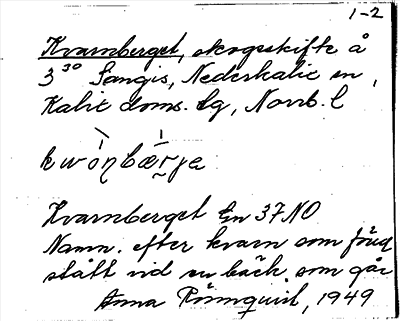 1-2
Kvarnberget, skogsskifte å
3³⁰ Sangis, Nederkalix sn,
Kalix doms. lg, Norrb. l
kwòṇbæ̀rjə
Kvarnberget Gn 37 NO
Namn. efter kvarn som förut
stått vid en bäck som går
Anna Rönnquist, 1949